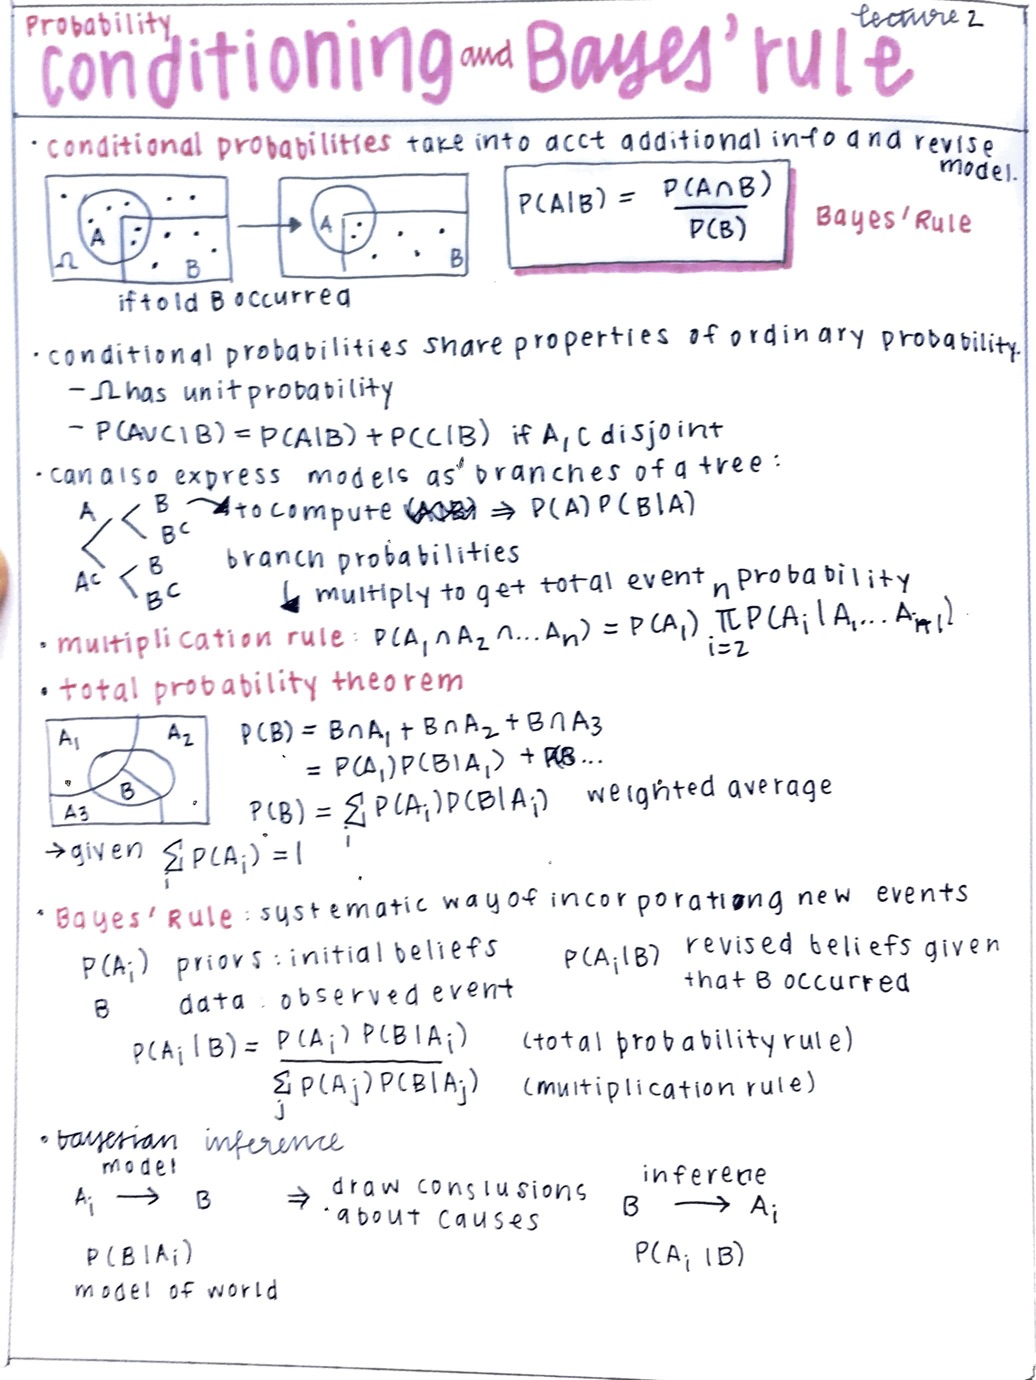 Probability
lecture 2
conditioning and Bayes' rule
· conditional probabilities take into acct additional info and revise
model.
A
Ω
B
A
B
P(A|B) = P(A∩B)
P(B)
Bayes' Rule
if told B occurred
· conditional probabilities share properties of ordinary probability.
- Ω has unit probability
- P(AUC|B) = P(A|B) + P(C|B) if A, C disjoint
· can also express models as branches of a tree:
A B to compute ⇒ P(A)P(B|A)
Bᶜ
branch probabilities
Aᶜ B
Bᶜ
↳ multiply to get total event probability
· multiplication rule: P(A₁∩A₂∩...Aₙ) = P(A₁) n π i=2 P(Aᵢ|A₁...Aᵢ₋₁)
· total probability theorem
A₁ A₂
B
A₃
P(B) = B∩A₁ + B∩A₂ + B∩A₃
= P(A₁)P(B|A₁) + ...
P(B) = Σᵢ P(Aᵢ)P(B|Aᵢ) weighted average
→ given Σᵢ P(Aᵢ) = 1
· Bayes' Rule: systematic way of incorporationg new events
P(Aᵢ) priors: initial beliefs
P(Aᵢ|B) revised beliefs given
that B occurred
B data: observed event
P(Aᵢ|B) = P(Aᵢ) P(B|Aᵢ) (total probability rule)
Σⱼ P(Aⱼ)P(B|Aⱼ) (multiplication rule)
· bayesian inference
model
Aᵢ → B ⇒ draw conslusions
about causes
inferene
B → Aᵢ
P(B|Aᵢ)
P(Aᵢ|B)
model of world